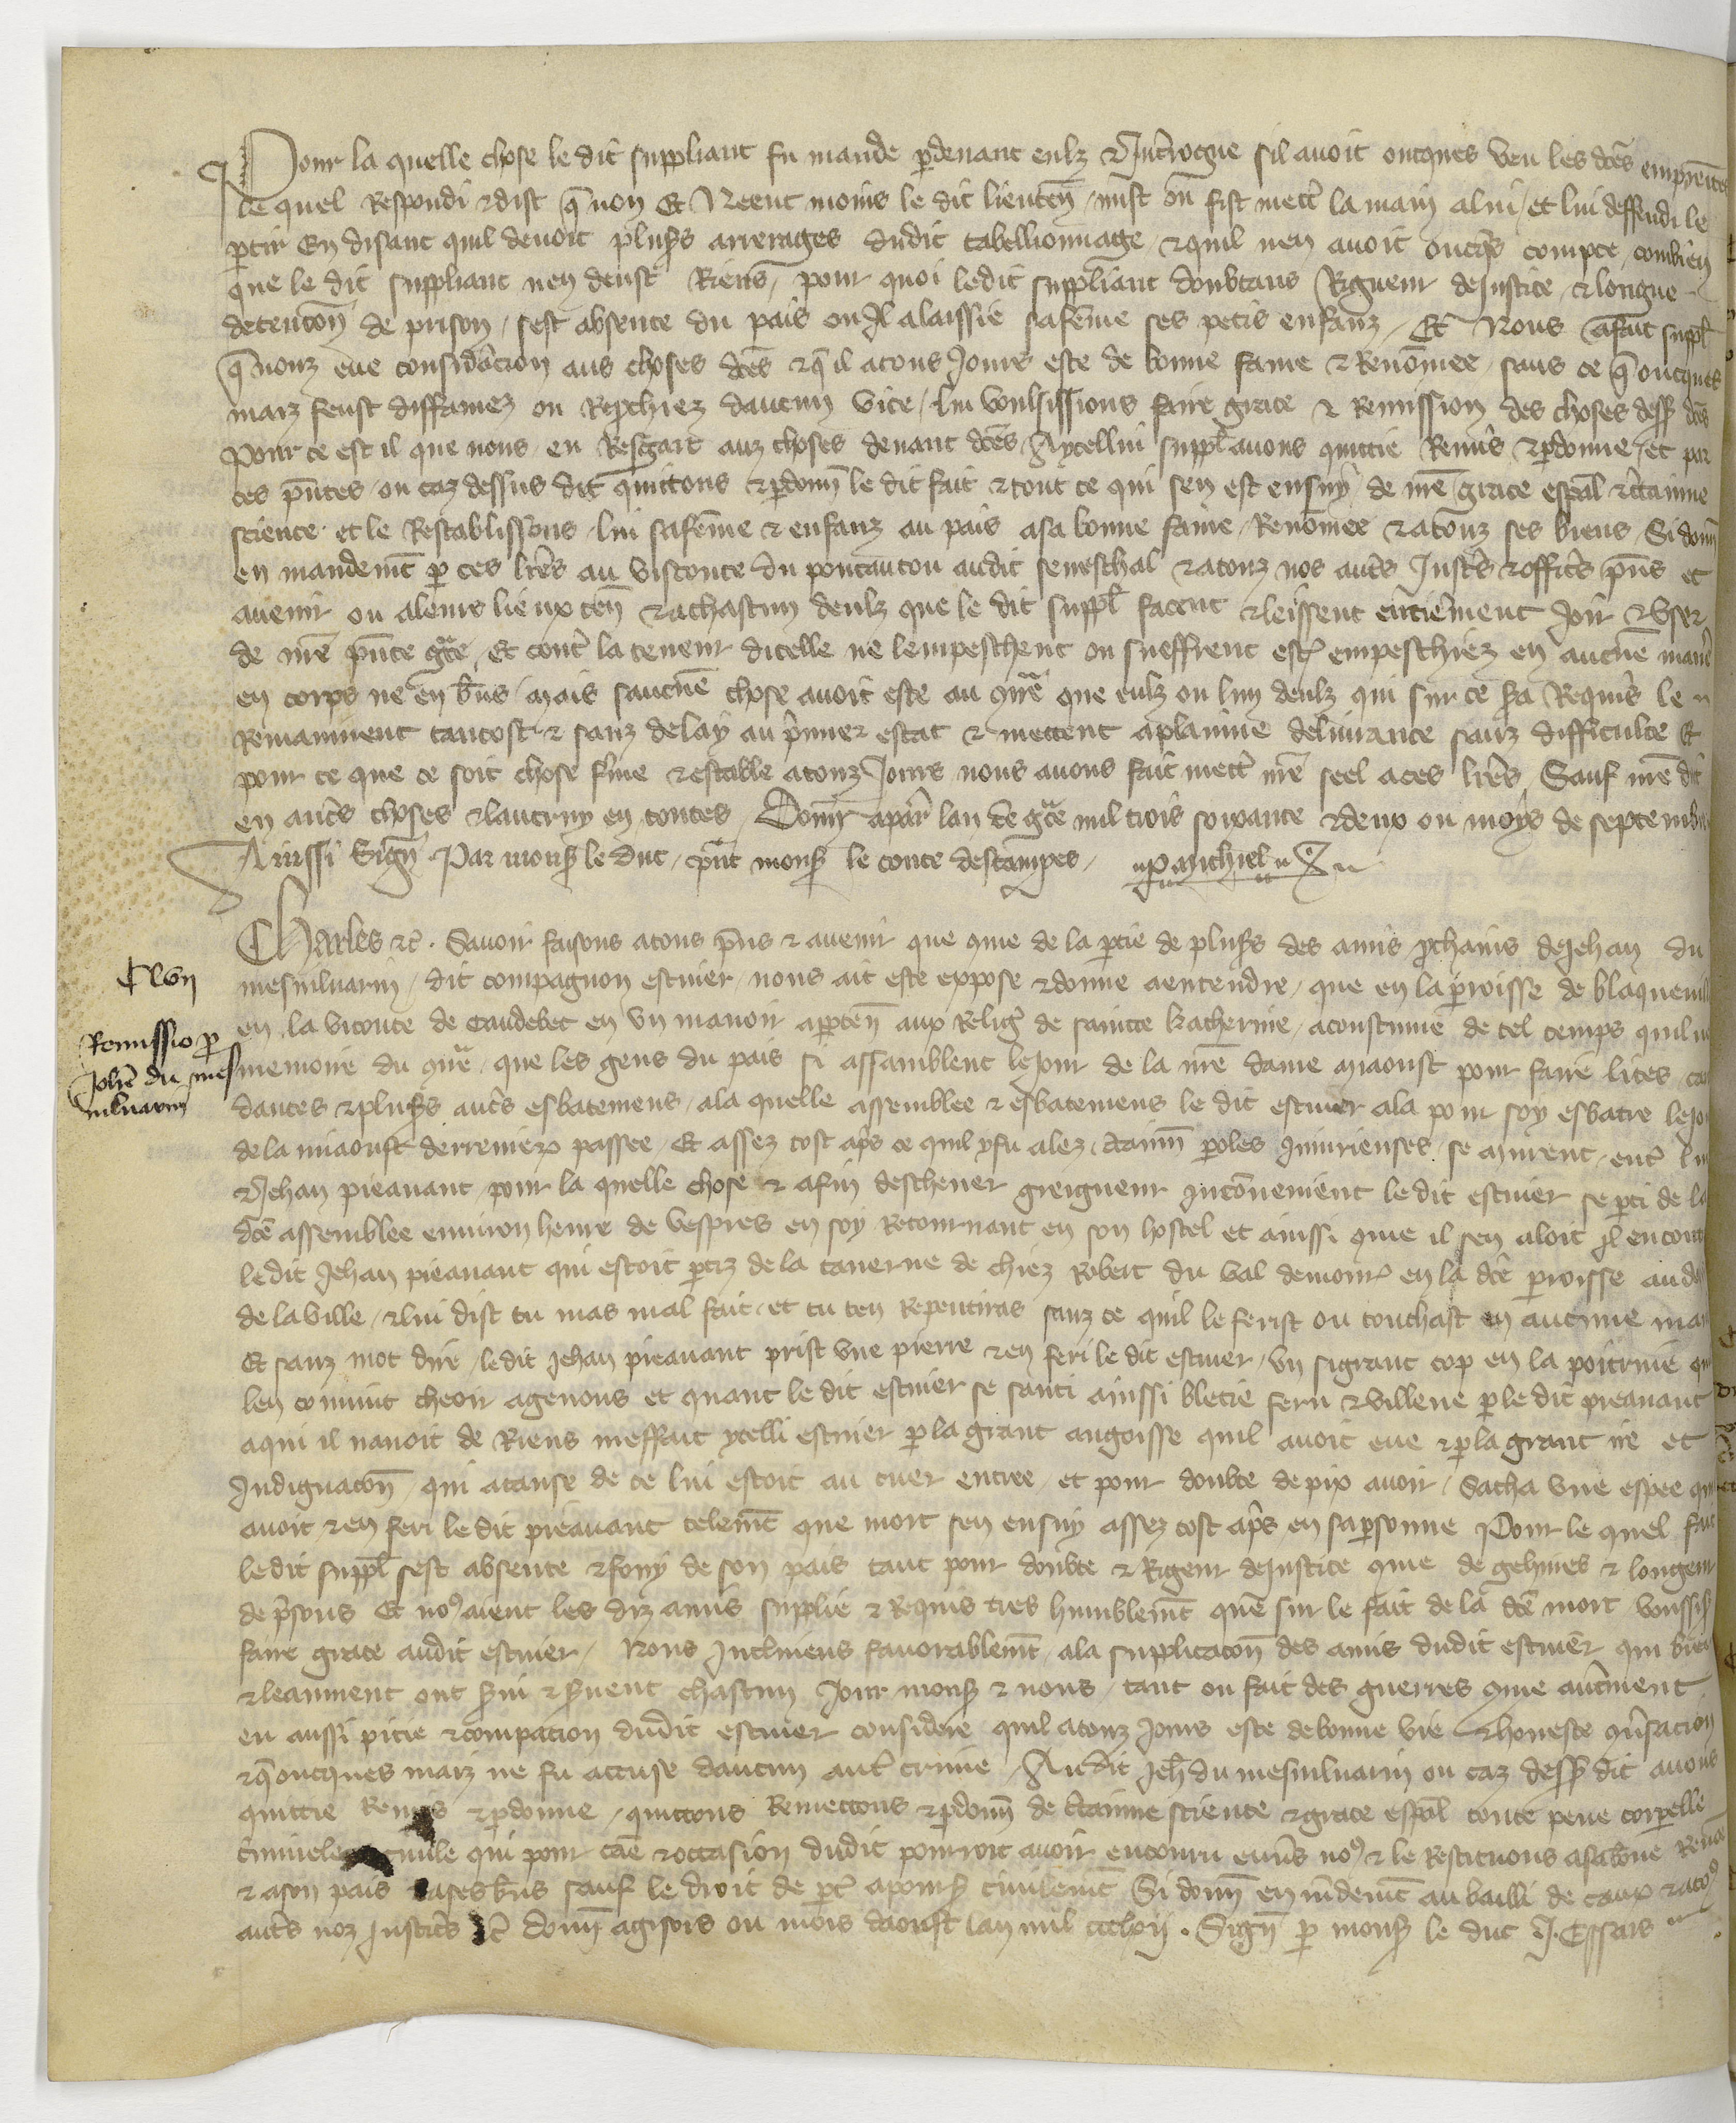 Pour la quelle chose le dit suppliant fu mande pdevant eulz & Introgue sil avoit oncques veu les dces empreintes
le quel Respondi & dist q non Et Neent moins le dit lieuten mist ou fist mett la main a lui / et lui deffendi le
ptir En disant quil devoit plus(rs) arrerages dudit tabellionnage / & quil nen avoit oncqs compte / combien
que le dit suppliant nen deust Riens / pour quoi ledit suppliant doubtans Rigueur de Justice / & longue
detencon de prison / sest absente du pais ou Il a laissie sa feme ses petis enfanz / Et Nous a fait suppl
q nouz eue consideracion aus choses dces & q il a tous Jours este de bonne fame & Renomee / sans ce q oncques
maiz feust diffamez ou Repchiez daucun vice / lui voulsissions faire grace & Remission des choses dess dces
Pour ce est il que nous / en Resgart auz choses devant dces / A ycellui suppl avons quittie Remis & pdonne / et par
ces pntes / ou caz dessus dit quittons & pdonn le dit fait & tout ce qui sen est ensuy / de nre grace espal & ctainne
science / et le Restablissons / lui sa feme & enfanz au pais a sa bonne fame / Renomee & a touz ses biens / Si donn
en mandemt p ces lres au visconte du pontautou audit seneschal & a touz nos auts Justs & offics pns et
avenir ou a leurs lieux ten & a chascun deulz que le dit suppl facent & leissent entierment Joir & User
de nre pnte gce / Et cont la teneur dicelle ne lempeschent ou sueffrent est empeschiez en aucune maner
en corps ne en bns / mais saucune chose avoit este au contre que eulz ou lun deulz qui sur ce sa Requis le
Remainnent tantost & sanz delay au pmier estat & mettent a plainne delivrance sanz difficulte Et
pour ce que ce soit chose fme & estable a touz Jours nous avons fait mett nre seel a ces lres / Sauf nre dt
en auts choses & lautruy en toutes / Donn a par lan de gce mil trois soixante & deux ou moys de septembre
Ainssi Sign / Par mons le duc / pnt mons le conte destampes / P. Michiel

Charles &c. Savoir faisons a tous pns & avenir que come de la ptie de plus(rs) des amis pchains de Jehan du
mesniluarin / dit compagnon escuier / nous ait este expose & donne a entendre / que en la proisse de blaquevill
en la viconte de Caudebec en un manoir apten aux Relig de saincte katherine / acoustume de tel temps quil ne
memoire du contre / que les gens du pais si assamblent le Jour de la nre dame miaoust pour faire lites / car
dances & plus(rs) auts esbatemens / a la quelle assemblee & esbatemens le dit escuier ala pour soy esbatre le Jo
de la miaoust derreniere passee / Et assez tost aps ce quil y fu alez ctainn poles Iniurieuses se murent / ent lu
& Jehan pieavant / pour la quelle chose & afin deschever greigneur Inconvenient le dit escuier se pti de la
dce assemblee environ heure de vespres en soy Retournant en son hostel et ainssi come il sen aloit Il encont
ledit Jehan pieavant qui estoit ptiz de la taverne de chiez Robert du val demour en la dce proisse au d
de la ville / & lui dist tu mas mal fait / et tu ten repentiras sanz ce quil le ferist ou touchast en aucune man
Et sanz mot dire / ledit Jehan pieavant prist une pierre & en feri le dit escuier / un si grant cop en la poitrine qu
len convint cheoir a genous et quant le dit escuier se santi ainssi blecie feru & villene p le dit pieavant
a qui il navoit de Riens meffait ycelli escuier p la grant angoisse quil avoit eue & p la grant ire et
Indignacon / qui a cause de ce lui estoit au cuer entree / et pour doubte de pix avoir / Sacha une espee qu
avoit & en feri le dit pieavant telemt que mort sen ensuy assez tost aps en sa psonne Pour le quel fait
le dit suppl sest absente & fouy de son pais tant pour doubte & Rigeur de Justice come de gehines & longeur
de psons Et no9 aient les diz amis supplie & Requis tres humblemt que sur le fait de la dce mort voussiss
faire grace audit escuier / Nous Inclinens favorablemt / a la supplicacon des amis dudit escuier qui bien
& leaument ont svi & svent chascun Jour mons & nous / tant ou fait des guerres come autment
eu aussi pitie & compacion dudit escuier considere quil a touz Jours este de bonne vie & honeste conversacion
& q oncques maiz ne fu accuse daucun aut crime / Au dit Jeh du mesniluarin ou caz dess dit avons
quittie Remis & pdonne / quittons Remettons & pdonn de ctainne science & grace espal toute pene corpelle
criminele civile qui pour cae & occasion dudit pourroit avoir encouru envs no9 & le Restituons a sa bone Renomee
& a son pais & a ses bns sauf le droit de ptie a pours civilemt Si donn en mdemt au bailli de caux & a to9
auts noz Justics &c donn a gisors ou mois daoust lan mil ccclxij. Sign p mons le duc J. Essars
Clvij
Remissio p
Johe du mes
niluarin